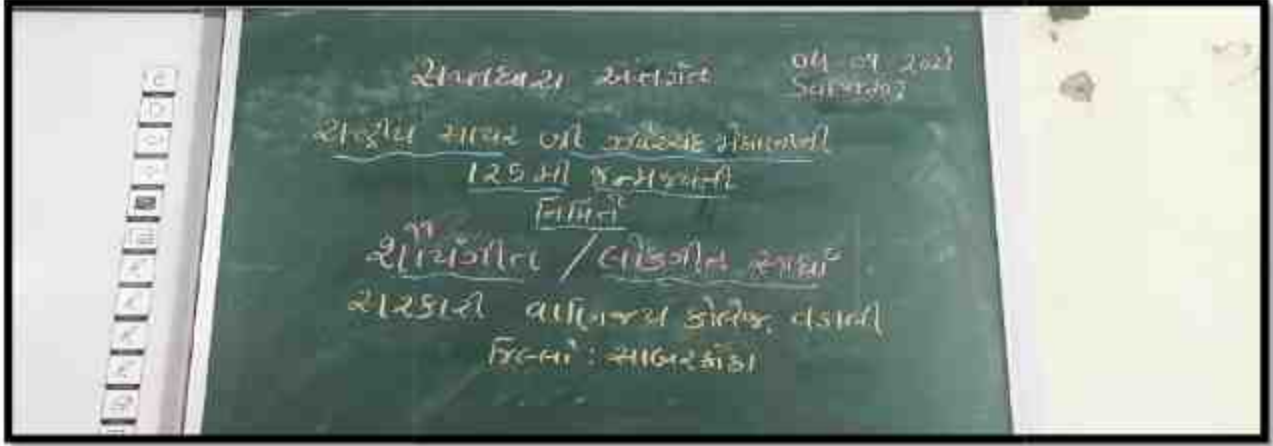 સપ્તધારા અંતર્ગત
રાષ્ટ્રીય શાયર શ્રી ઝવેરચંદ મેઘાણીની
125 મી જન્મજયંતી
નિમિત્તે
શૌર્યગીત / લોકગીત સ્પર્ધા
સરકારી વાણિજ્ય કોલેજ, વડાલી
જિલ્લો : સાબરકાંઠા